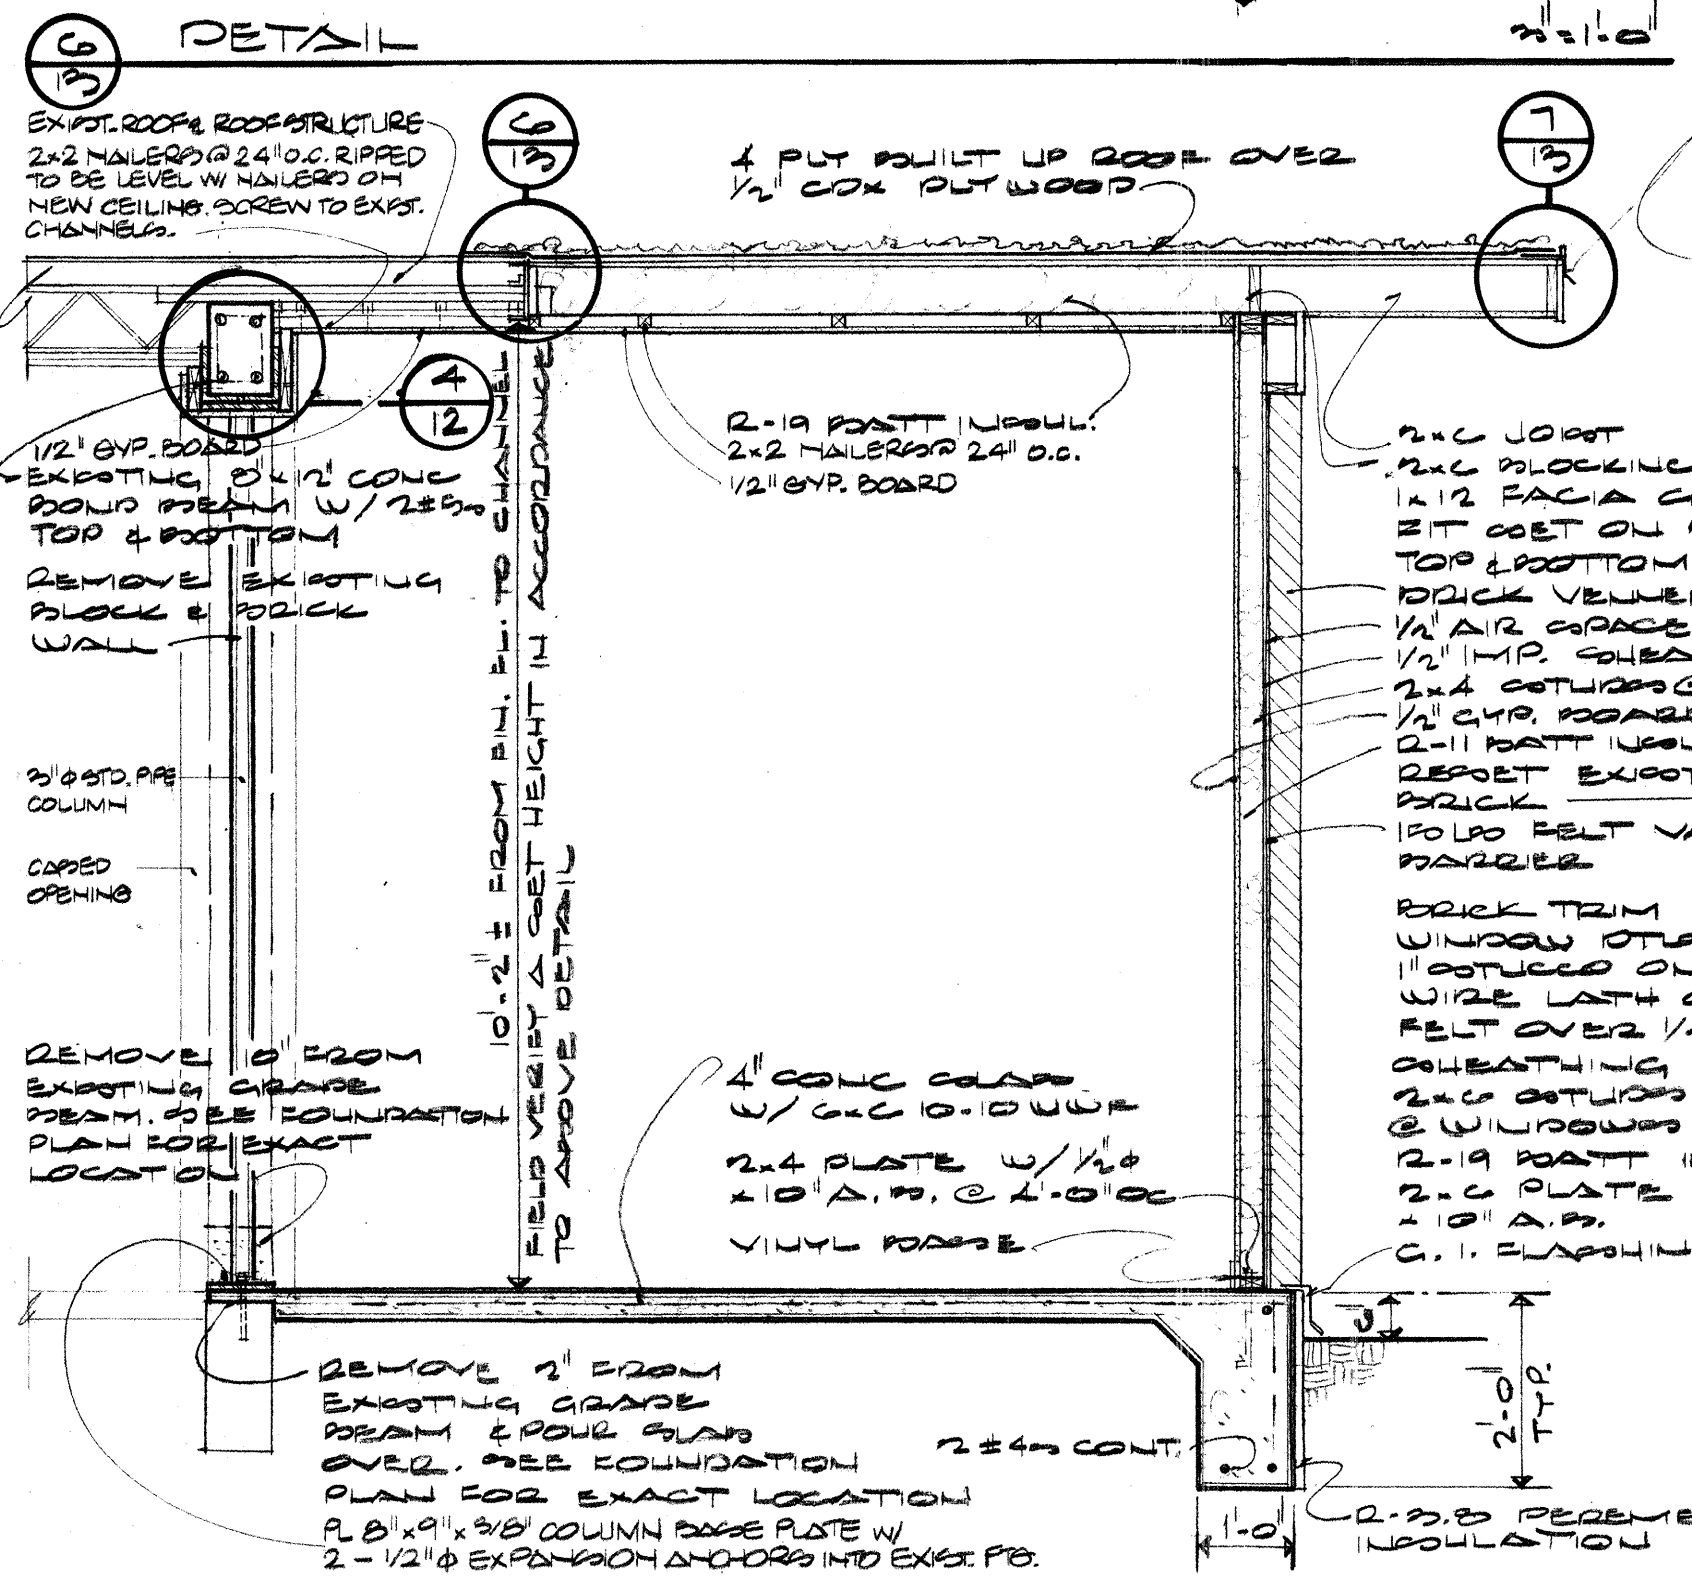 6
13
DETAIL
3"=1'-0"
EXIST. ROOF & ROOF STRUCTURE
2x2 NAILERS @ 24" O.C. RIPPED
TO BE LEVEL W/ NAILERS ON
NEW CEILING. SCREW TO EXIST.
CHANNELS.
6
13
4 PLY BUILT UP ROOF OVER
1/2" CDX PLYWOOD
7
13
4
12
1/2" GYP. BOARD
EXISTING 8" x 12" CONC
BOND BEAM W/ 2 #5s
TOP & BOTTOM
REMOVE EXISTING
BLOCK & BRICK
WALL
3" ϕ STD. PIPE
COLUMN
CASED
OPENING
REMOVE 10" FROM
EXISTING GRADE
BEAM. SEE FOUNDATION
PLAN FOR EXACT
LOCATION
10'-2" ± FROM FIN. FL. TO CHANNEL
FIELD VERIFY & SET HEIGHT IN ACCORDANCE
TO ABOVE DETAIL
R-19 BATT INSUL.
2x2 NAILERS @ 24" O.C.
1/2" GYP. BOARD
2x6 JOIST
2x6 BLOCKING
1x12 FACIA
FIT SET ON
TOP & BOTTOM
BRICK VENNE
1/2" AIR SPACE
1/2" IMP. SHEA
2x4 STUDS @
1/2" GYP. BOARD
R-11 BATT INSU
RESET EXIST
BRICK
15 LB FELT VA
BARRIER
BRICK TRIM
WINDOW DTLS
1" STUCCO ON
WIRE LATH
FELT OVER 1/
SHEATHING
2x6 STUDS
@ WINDOWS
R-19 BATT I
2x6 PLATE
x 10" A.B.
G.I. FLASHIN
4" CONC SLAB
W/ 6x6 10-10 WWF
2x4 PLATE W/ 1/2" ϕ
x 10" A.B. @ 4'-0" OC
VINYL BASE
REMOVE 2" FROM
EXISTING GRADE
BEAM & POUR SLAB
OVER. SEE FOUNDATION
PLAN FOR EXACT LOCATION
PL 8" x 9" x 3/8" COLUMN BASE PLATE W/
2 - 1/2" ϕ EXPANSION ANCHORS INTO EXIST. FTG.
2 #4s CONT.
6"
2'-0"
TYP.
1'-0"
R-3.8 PEREME
INSULATION